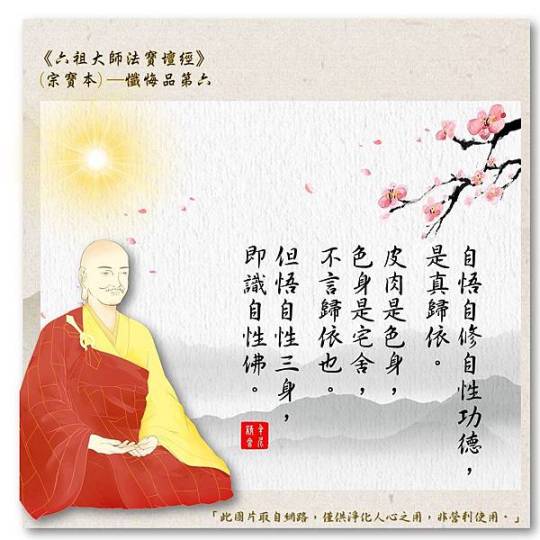 《六祖大師法寶壇經》
(宗寶本)—懺悔品第六
自悟自修自性功德，
是真歸依。
皮肉是色身，
色身是宅舍，
不言歸依也。
但悟自性三身，
即識自性佛。
「此圖片取自網路，僅供淨化人心之用，非營利使用。」